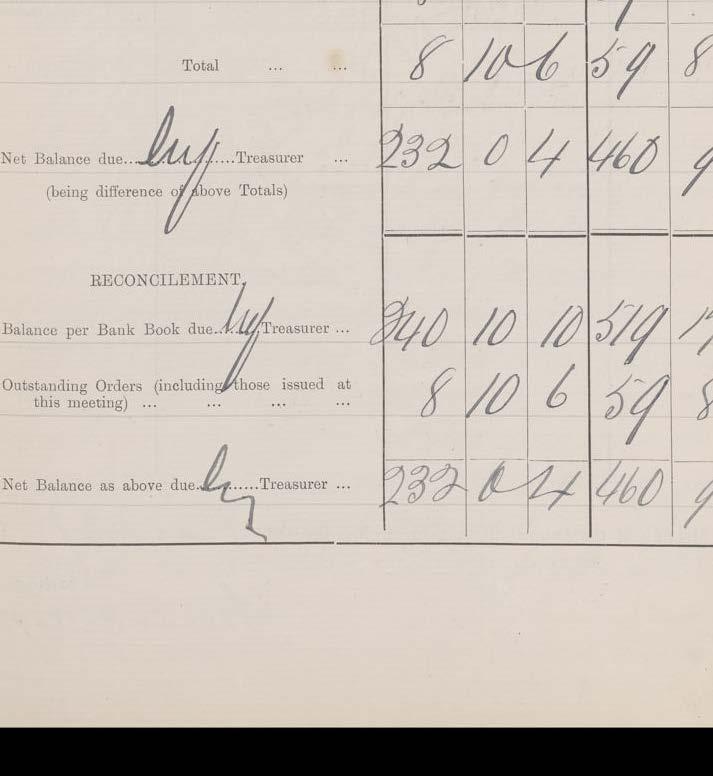 Total ... ... 8 10 6 59 8
Net Balance due...by......Treasurer ... 232 0 4 460 9
(being difference of above Totals)
RECONCILEMENT.
Balance per Bank Book due...by Treasurer ... 240 10 10 519 17
Outstanding Orders (including those issued at
this meeting) ... ... ... ... 8 10 6 59 8
Net Balance as above due..by......Treasurer ... 232 0 4 460 9